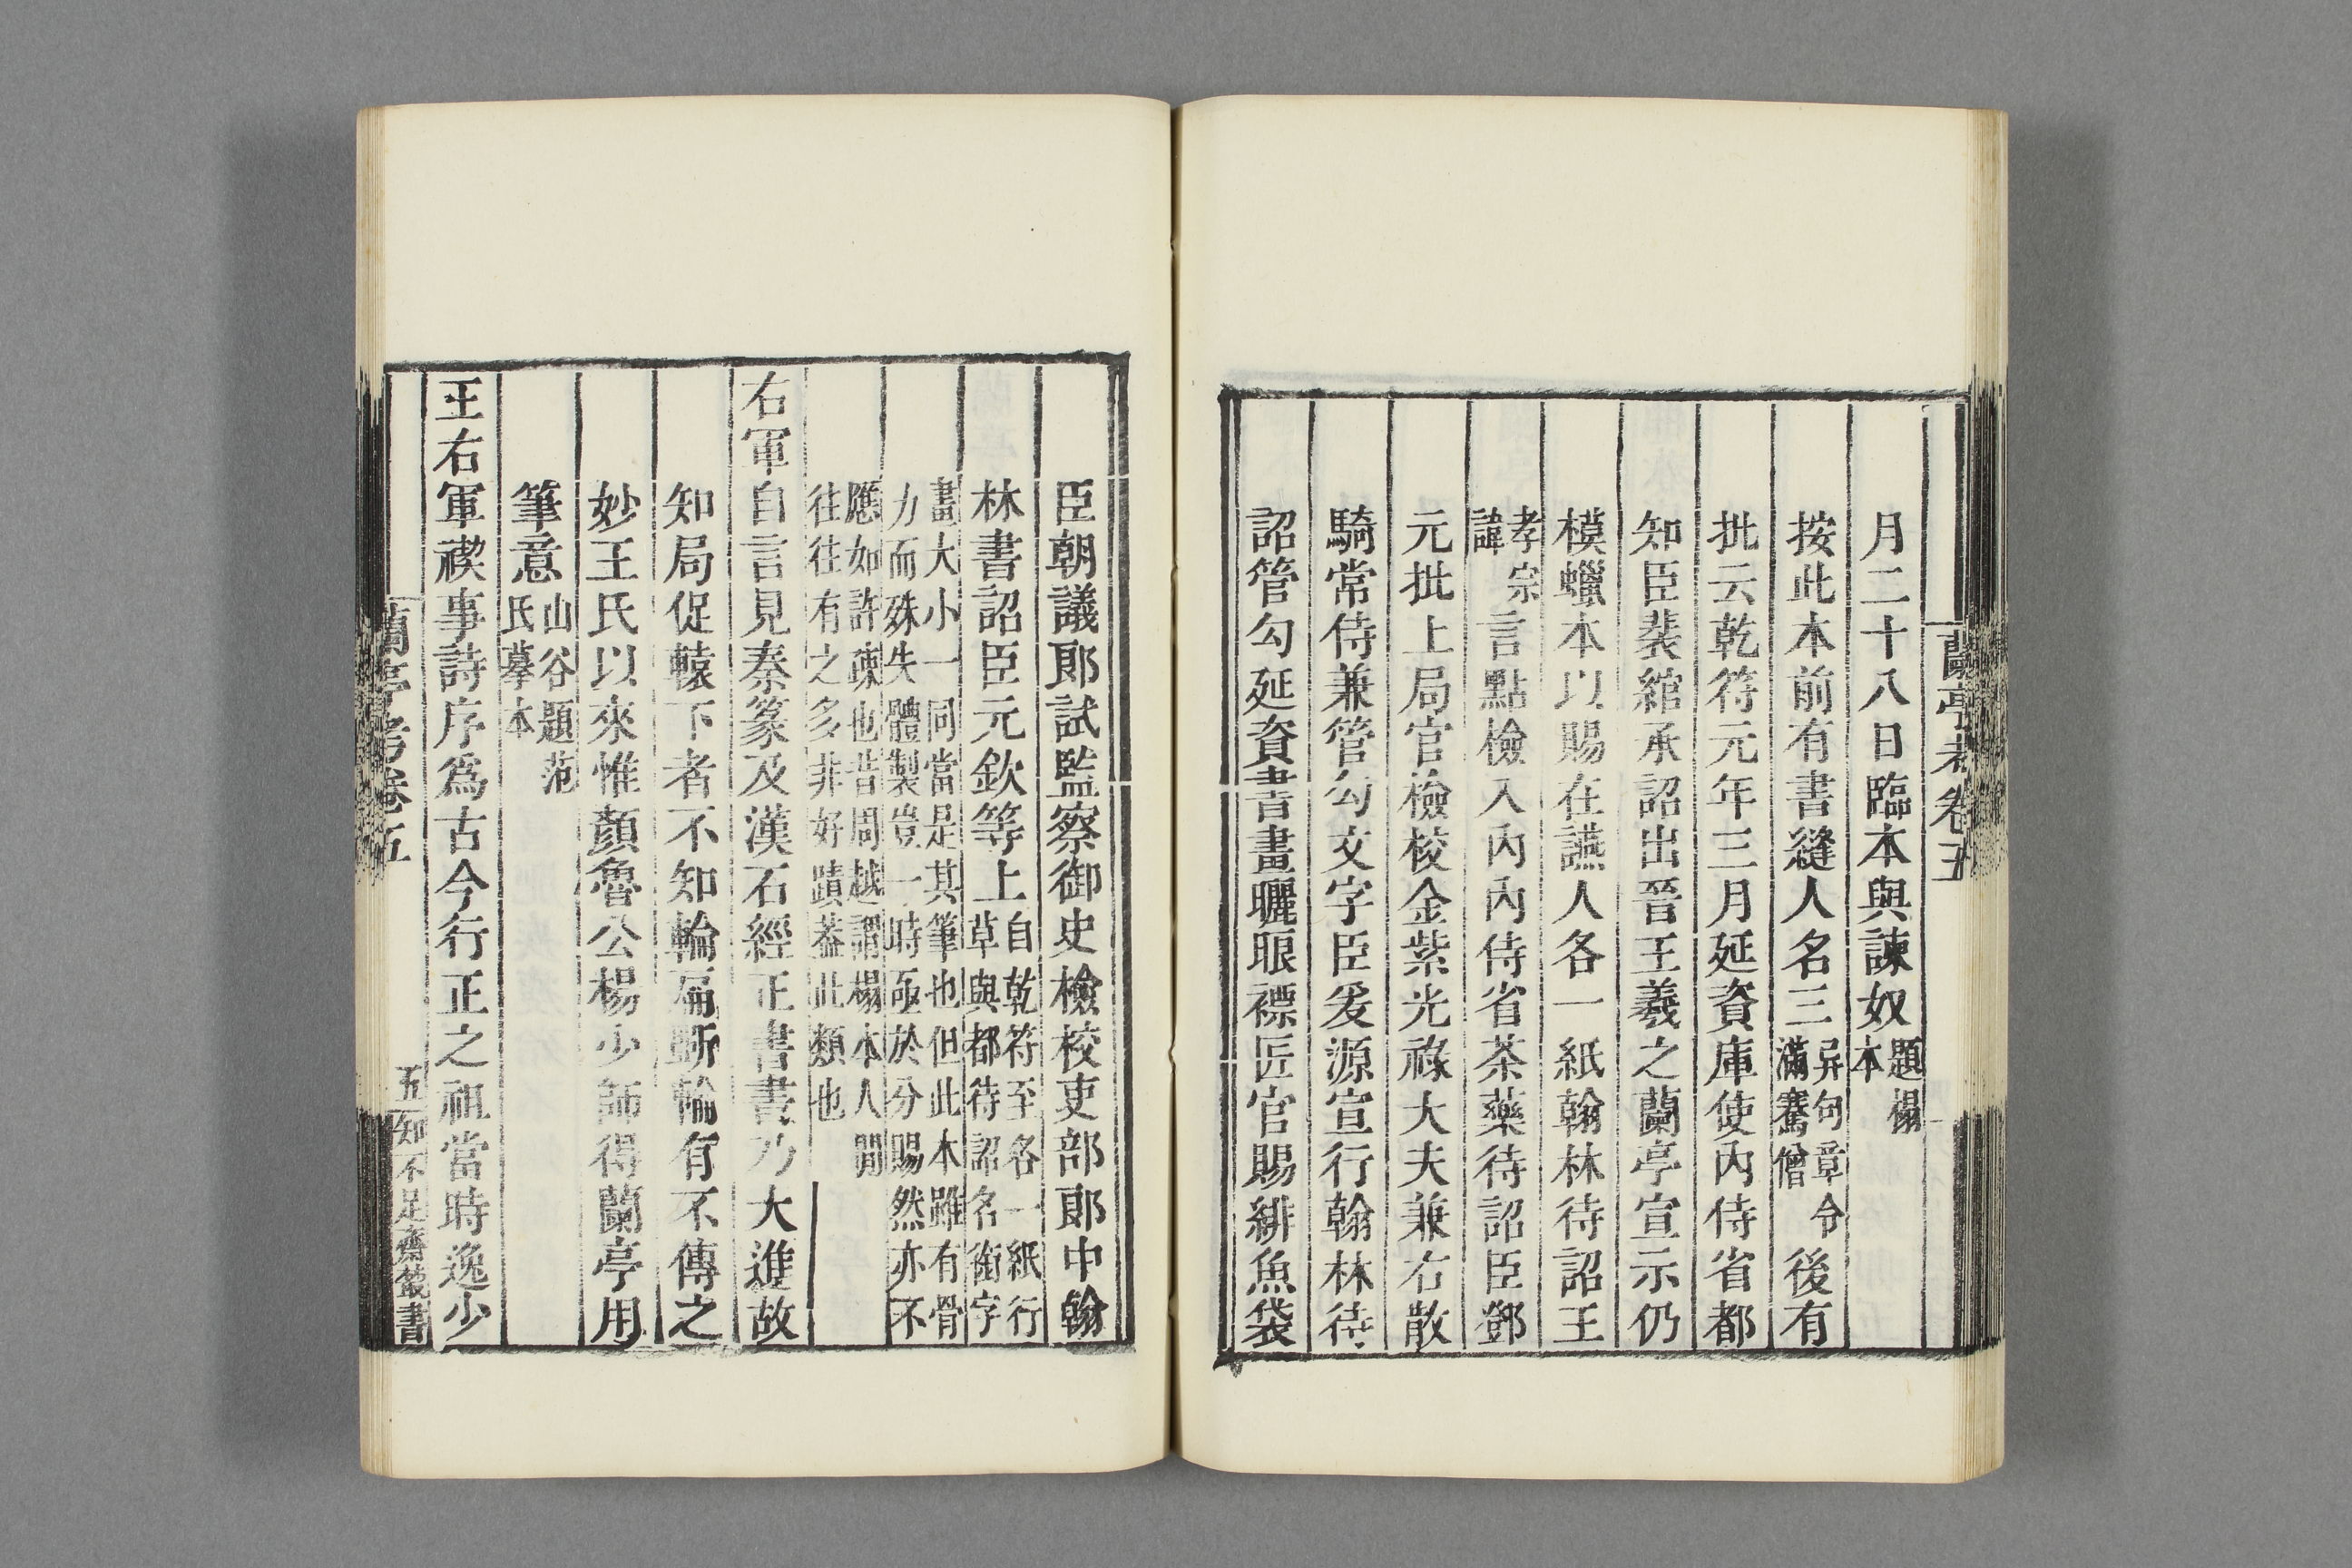 蘭亭考卷五
月二十八日臨本與諫奴題楊本
按此本前有書縫人名三异句章令滿騫僧後有
批云乾符元年三月延資庫使內侍省都
知臣裴綰承詔出晉王羲之蘭亭宣示仍
模蠟本以賜在讌人各一紙翰林待詔王
孝宗諱言點檢入內內侍省茶藥待詔臣鄧
元批上局官檢校金紫光祿大夫兼右散
騎常侍兼管勾文字臣爰源宣行翰林待
詔管勾延資書畫曬眼褾匠官賜緋魚袋
臣朝議郞試監察御史檢校吏部郞中翰
林書詔臣元欽等上自乾符至各一紙行草與都待詔名銜字
畫大小一同當是其筆也但此本雖有骨力而殊失體製豈一時亟於分賜然亦不
應如許疎也昔周越謂楊本人間往往有之多非好蹟葢此類也
右軍自言見秦篆及漢石經正書書乃大進故
知局促轅下者不知輪扁斲輪有不傳之
妙王氏以來惟顏魯公楊少師得蘭亭用
筆意山谷題范氏摹本
王右軍禊事詩序爲古今行正之祖當時逸少
蘭亭考卷五
五
知不足齋叢書